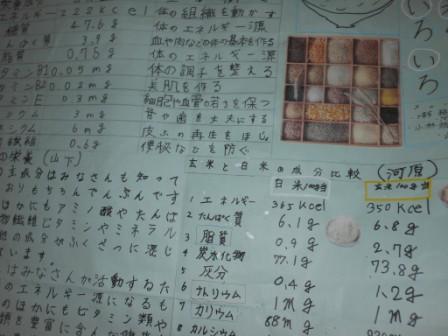 エネルギー 222Kcel 体の組織を動かす
糖質 47.6g 体のエネルギー源
3.9g 血や肉などの体の基本を作る
脂質 0.75g 体のエネルギー源
B1 0.05mg 体の調子を整える
0.02mg 美肌を作る
ミンE 0.3mg 細胞や血管の若さを保つ
シウム 3mg 骨や歯を丈夫にする
6mg
0.6g 便秘などを防ぐ
の栄養(山下)
主成分はみなさんも知って
おりもちろんでんぷんです
ほかにもアミノ酸やたんぱ
物繊維ビタミンやミネラル
他の成分がふくざつに混じ
います。
はみなさんが活動するた
のエネルギー源になるも
のほかにもビタミン類や
いろ
いろ
玄米と白米の成分比較(河原)
白米100g当 玄米100g当
1 エネルギー 365Kcel 350Kcel
2 たんぱく質 6.1g 6.8g
3 脂質 0.9g 2.7g
4 炭水化物 77.1g 73.8g
5 灰分 0.4g 1.2g
6 ナトリウム 1mg 1mg
7 カリウム 88mg
8 カルシウム